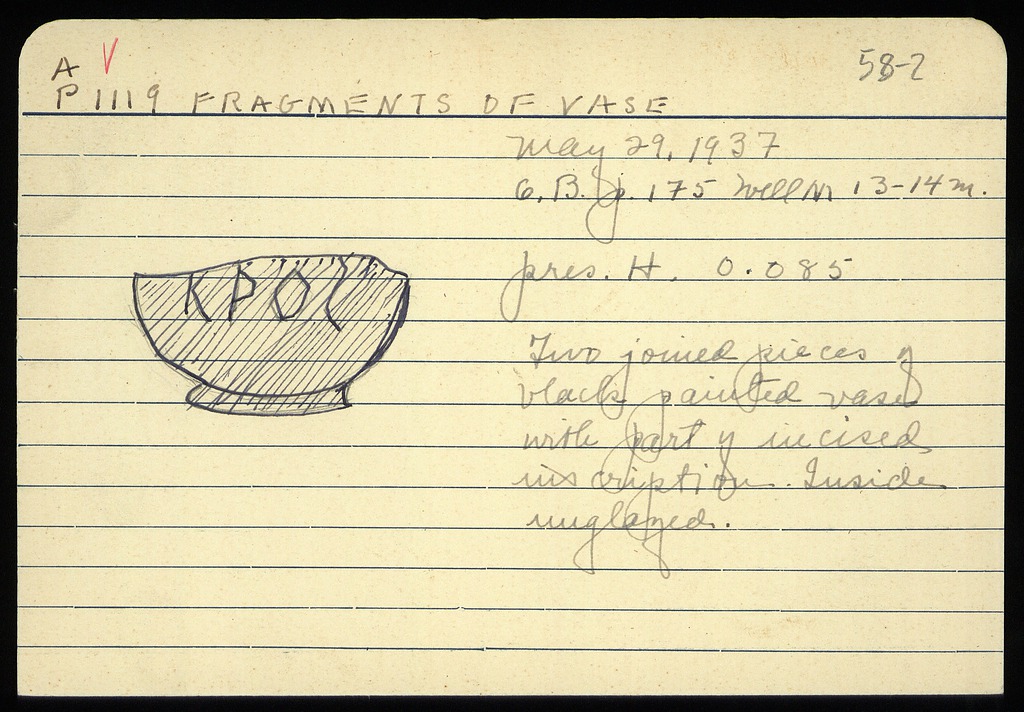 A V
58-2
P 1119 FRAGMENTS OF VASE
May 29, 1937
6, B. p. 175 Well M 13-14 m.
pres. H. 0.085
ΚΡΟΥ
Two joined pieces of
black painted vase
with part of incised
inscription. Inside
unglazed.